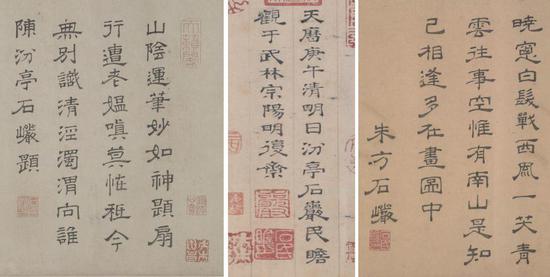 山陰運筆妙如神題扇
行遭老媼嗔莫恠秪今
無別識清涇濁渭向誰
陳汾亭石巗題
天曆庚午清明日汾亭石巖民瞻
觀于武林宗陽明復齋
曉窻白髮戰西風一笑青
雲往事空惟有南山是知
己相逢多在畫圖中
朱方石巗